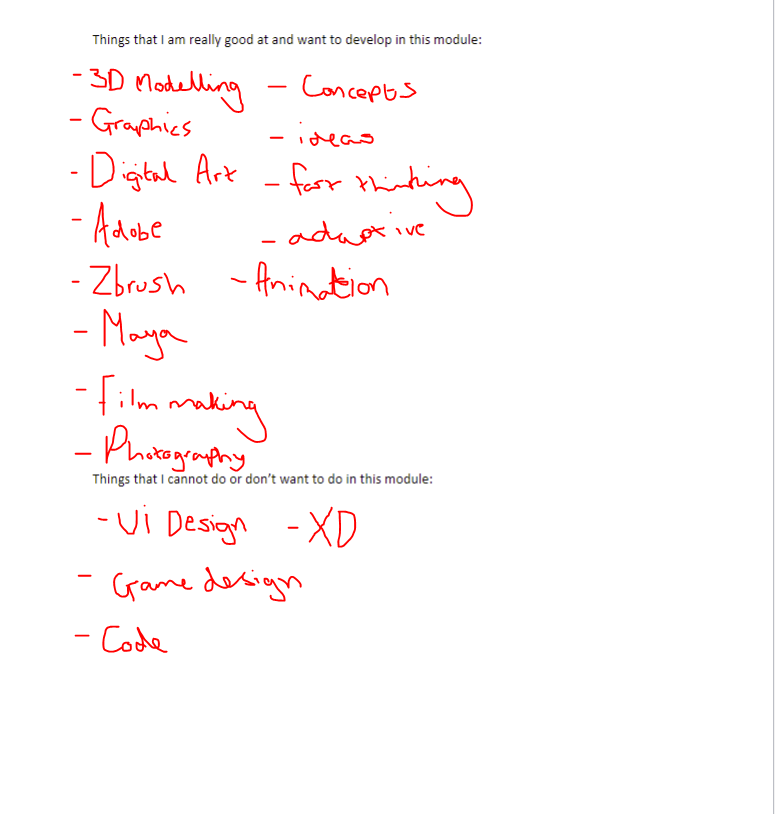 Things that I am really good at and want to develop in this module:
- 3D Modelling - Concepts
- Graphics - ideas
- Digital Art - fast thinking
- Adobe - adaptive
- Zbrush - Animation
- Maya
- film making
- Photography
Things that I cannot do or don't want to do in this module:
- Ui Design - XD
- Game design
- Code